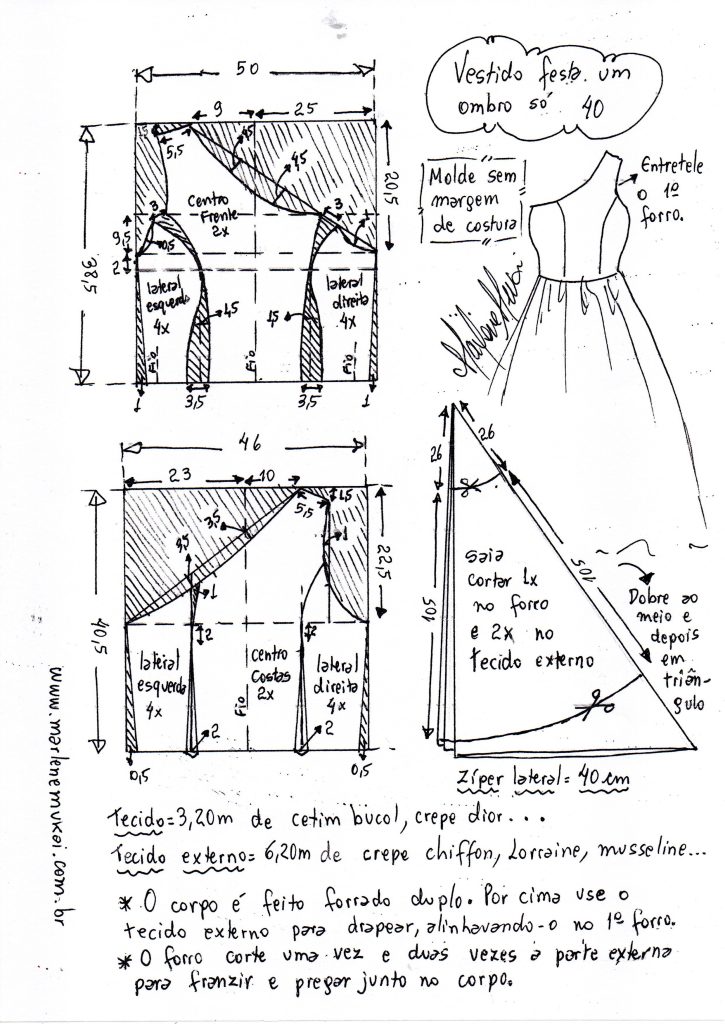 Vestido festa um
ombro só 40
Molde sem
margem
de costura
Entretele
o 1º
forro.
Marlene Mukai
50
9
25
1,5
5,5
4,5
4,5
38,5
20,5
Centro
Frente
2x
3
3
9,5
0,5
1
2
lateral
esquerda
4x
1,5
1,5
lateral
direita
4x
Fio
Fio
Fio
1
3,5
3,5
1
46
23
10
1,5
5,5
3,5
1
40,5
22,5
1
2
2
lateral
esquerda
4x
centro
Costas
2x
lateral
direita
4x
Fio
2
2
0,5
0,5
26
26
105
105
saia
cortar 1x
no forro
e 2x no
tecido externo
Dobre ao
meio e
depois
em
triân-
gulo
Zíper lateral = 40 cm
www.marlenemukai.com.br
Tecido = 3,20m de cetim bucol, crepe dior...
Tecido externo = 6,20m de crepe chiffon, Lorraine, musseline...
* O corpo é feito forrado duplo. Por cima use o
tecido externo para drapear, alinhavando-o no 1º forro.
* O forro corte uma vez e duas vezes a parte externa
para franzir e pregar junto no corpo.